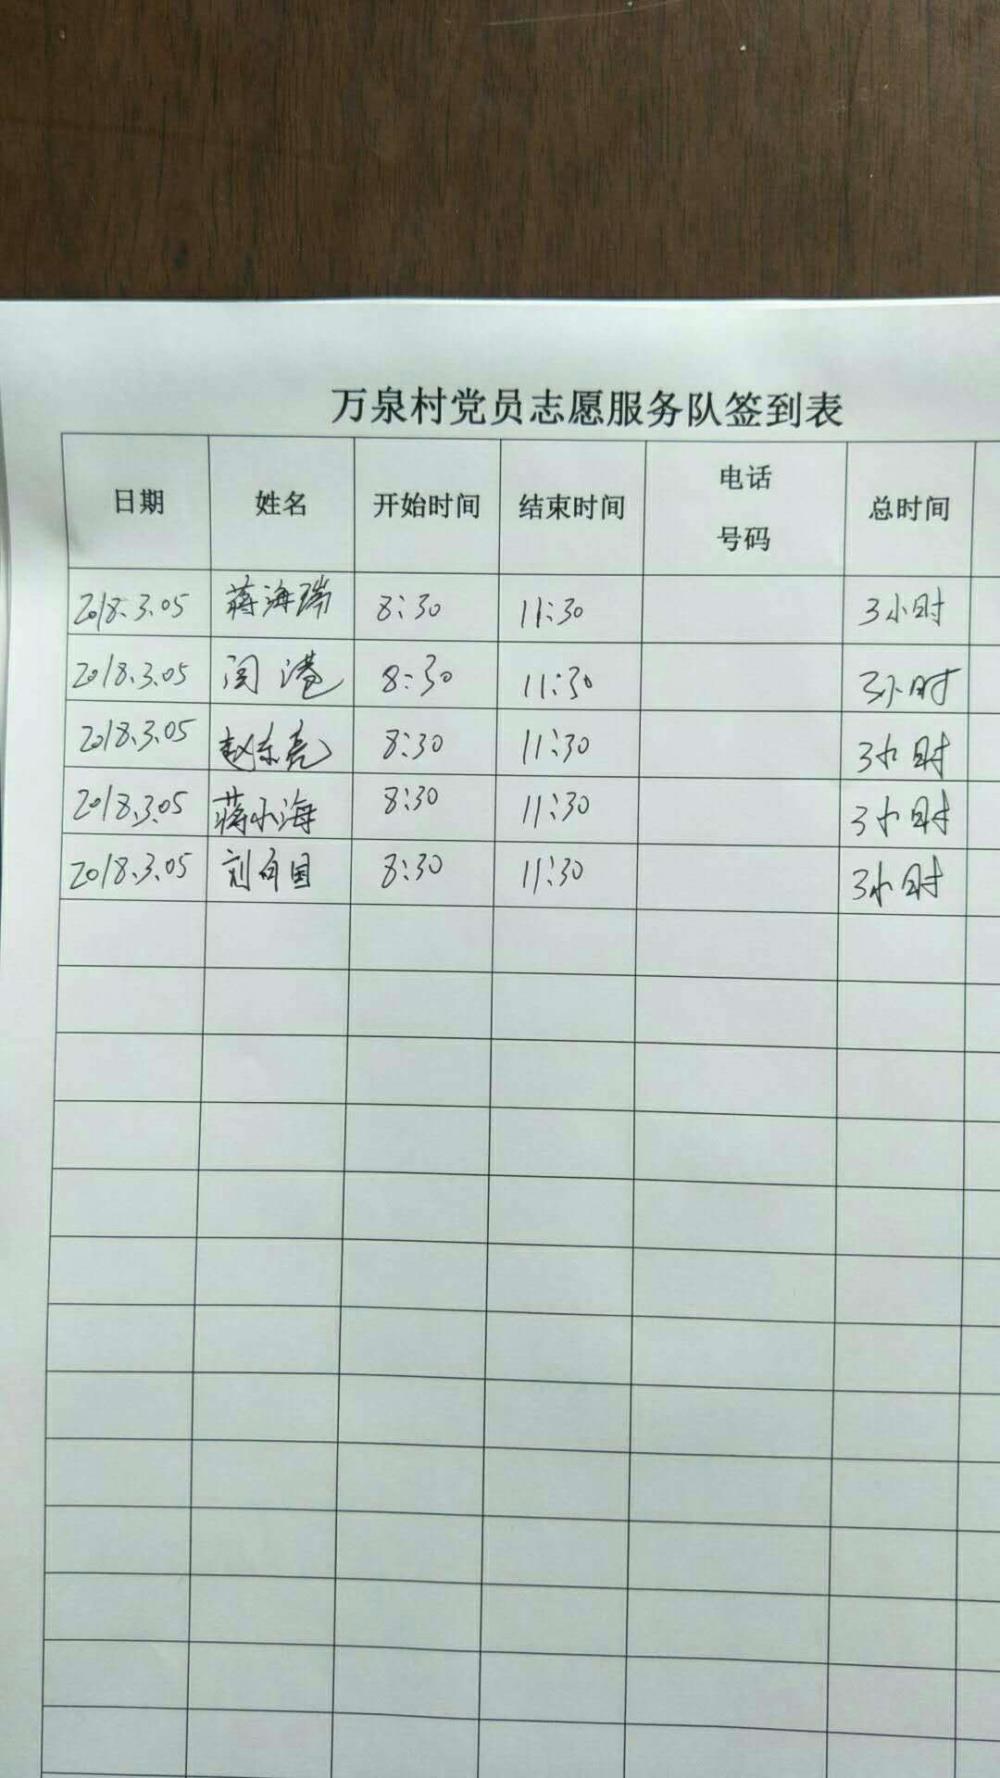 万泉村党员志愿服务队签到表
日期 姓名 开始时间 结束时间 电话号码 总时间
2018.3.05 蒋海瑞 8:30 11:30 3小时
2018.3.05 闵港 8:30 11:30 3小时
2018.3.05 赵东亮 8:30 11:30 3小时
2018.3.05 蒋小海 8:30 11:30 3小时
2018.3.05 刘向国 8:30 11:30 3小时